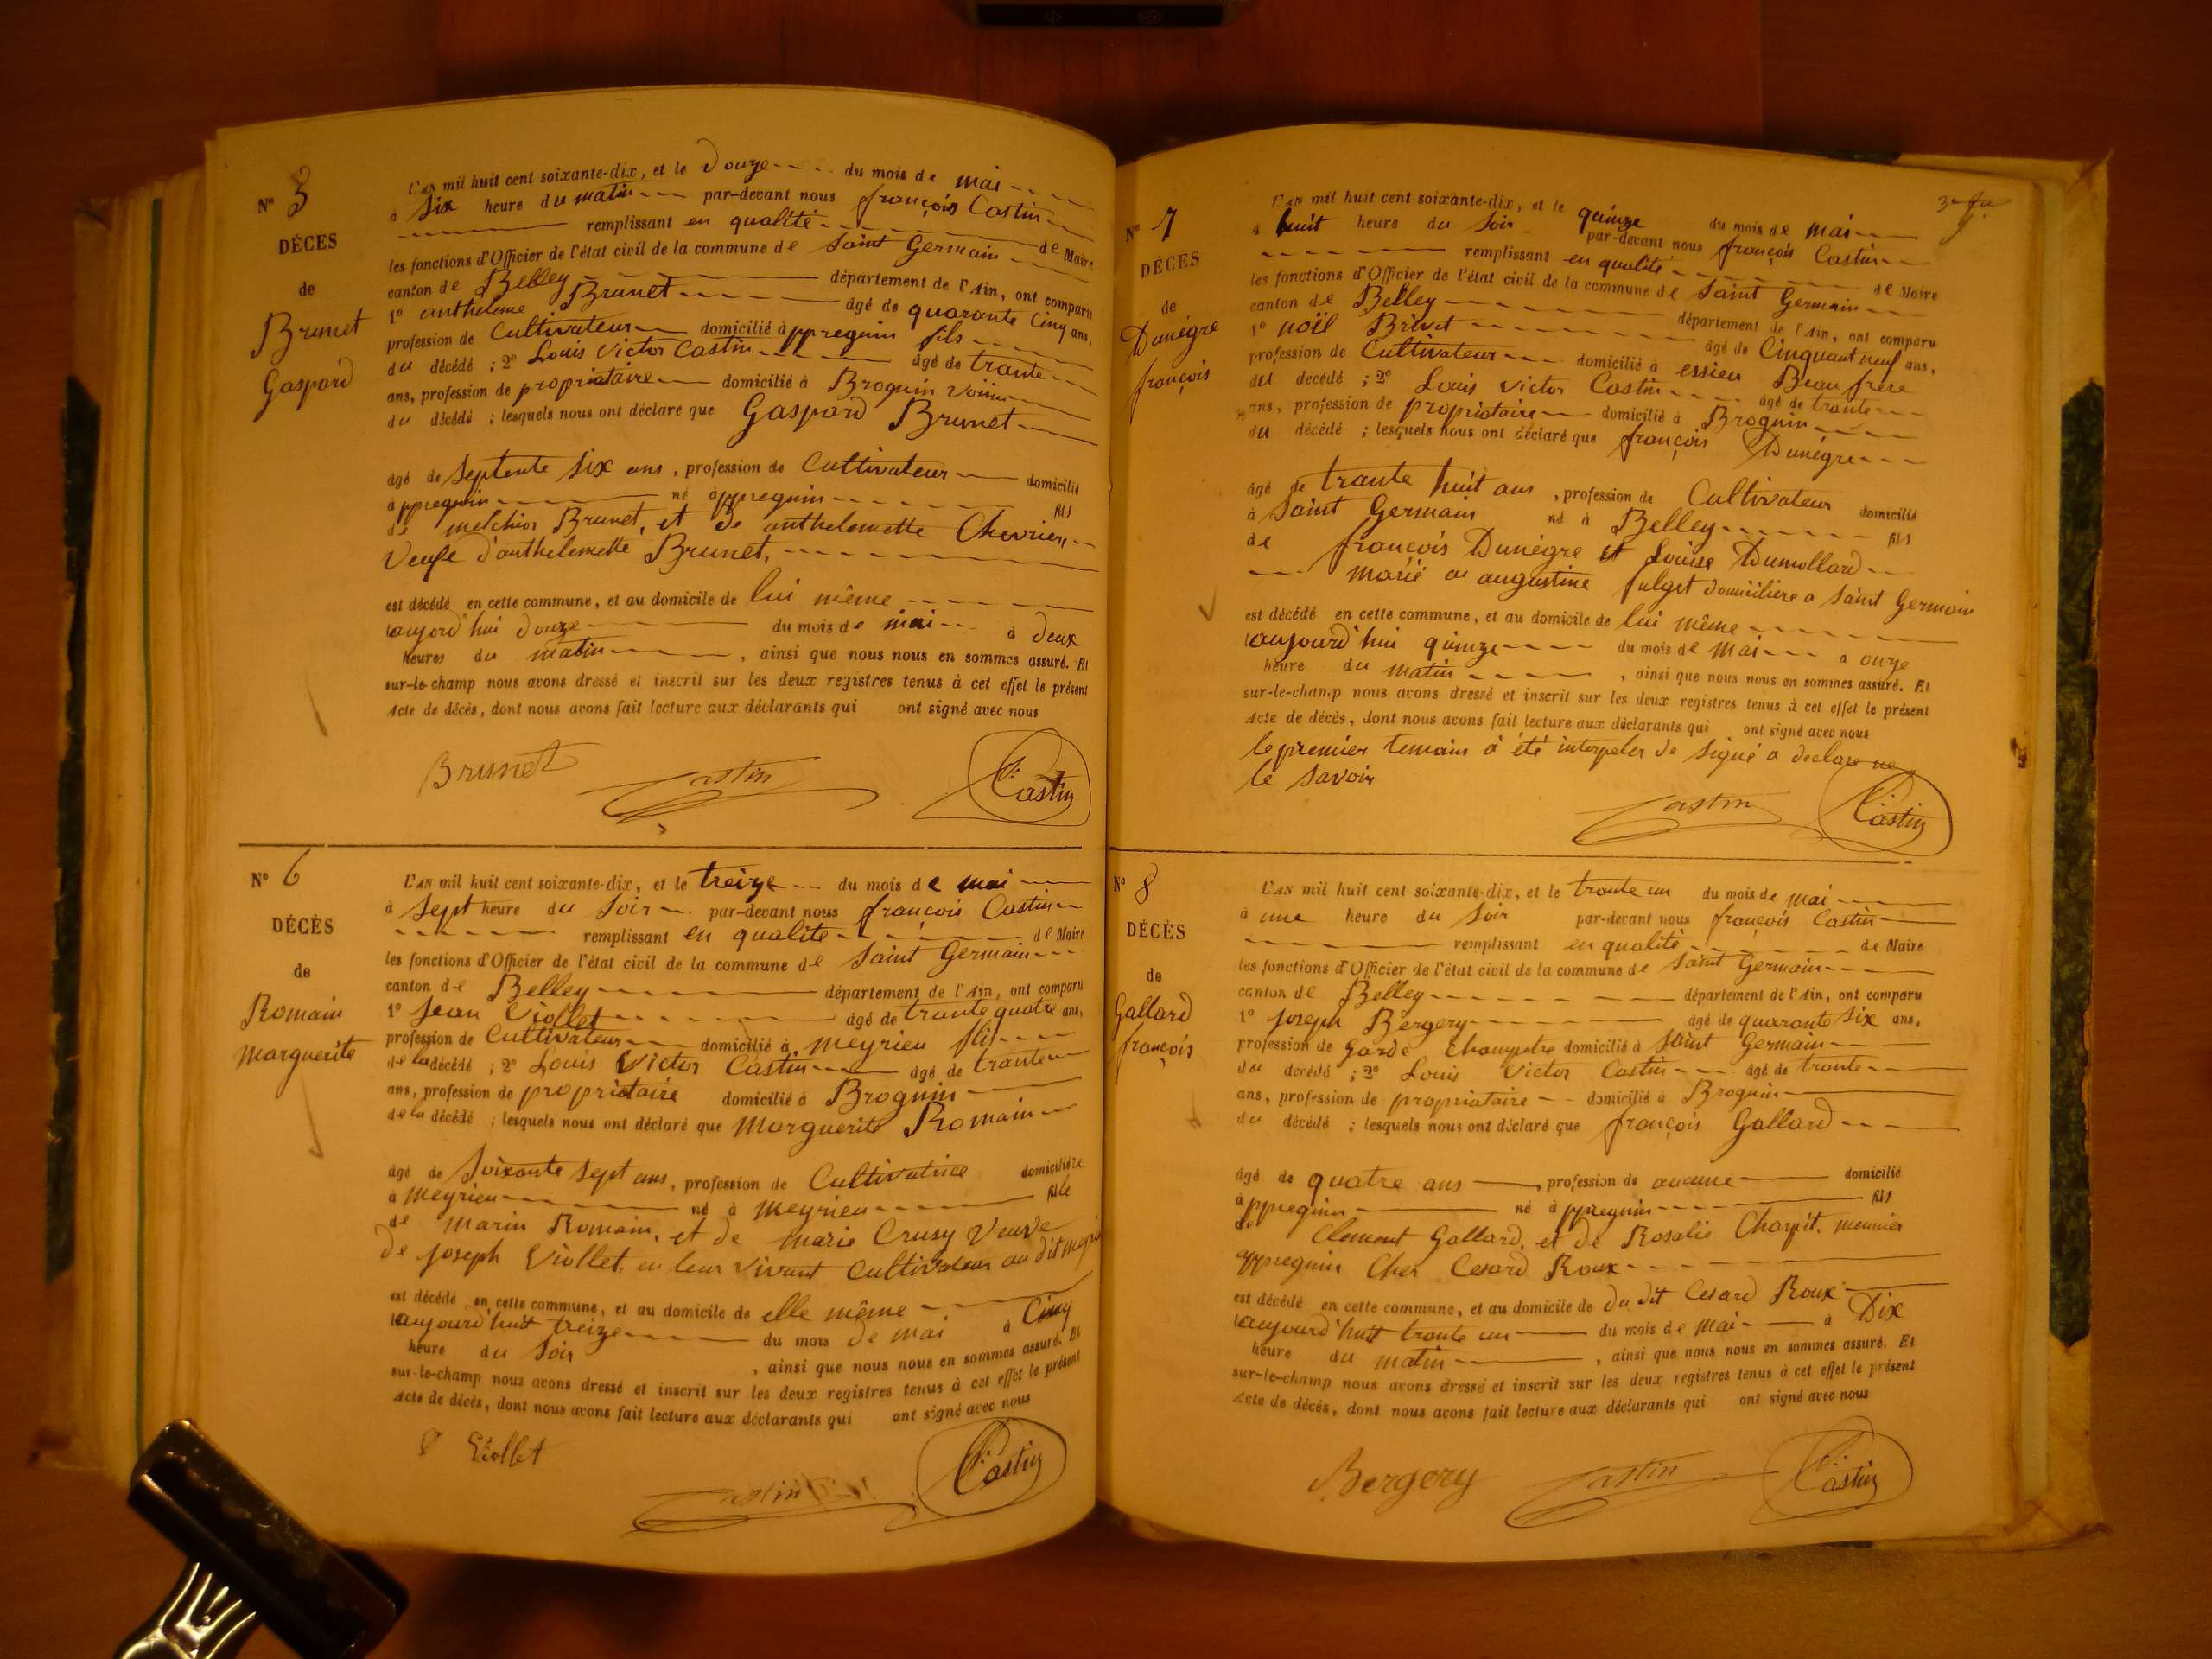 N° 3
DÉCÈS
de
Brunet
Gaspard
L'AN mil huit cent soixante-dix, et le Douze du mois de mai
à six heure du matin par-devant nous françois Castin
remplissant en qualité de Maire
les fonctions d'Officier de l'état civil de la commune de Saint Germain
canton de Belley département de l'Ain, ont comparu
1° anthelme Brunet âgé de quarante Cinq ans,
profession de Cultivateur domicilié à appregnin fils
du décédé ; 2° Louis Victor Castin âgé de trante
ans, profession de propriataire domicilié à Brognin voisin
du décédé ; lesquels nous ont déclaré que Gaspard Brunet
âgé de Septente six ans, profession de Cultivateur domicilié
à appregnin né à appregnin fils
de melchior Brunet, et de anthelemette Chevrier,
Veufe d'anthelemette Brunet,
est décédé en cette commune, et au domicile de lui même
aujord'hui douze du mois de mai à deux
heures du matin, ainsi que nous nous en sommes assuré. Et
sur-le-champ nous avons dressé et inscrit sur les deux registres tenus à cet effet le présent
Acte de décès, dont nous avons fait lecture aux déclarants qui ont signé avec nous
Brunet Castin Castin
N° 6
DÉCÈS
de
Romain
marguerite
L'AN mil huit cent soixante-dix, et le treize du mois de mai
à sept heure du soir par-devant nous françois Castin
remplissant en qualité de Maire
les fonctions d'Officier de l'état civil de la commune de Saint Germain
canton de Belley département de l'Ain, ont comparu
1° Jean Viollet âgé de trante quatre ans,
profession de Cultivateur domicilié à meyrieu fils
de la décédé ; 2° Louis Victor Castin âgé de trante
ans, profession de propriataire domicilié à Brognin
de la décédé ; lesquels nous ont déclaré que Marguerite Romain
âgé de Soixante sept ans, profession de Cultivatrice domicilière
à meyrieu né à meyrieu fille
de marin Romain, et de marie Crusy Veuve
de joseph Viollet, en leur vivant Cultivateur au dit
est décédé en cette commune, et au domicile de elle même
aujourd'huit treize du mois de mai à Cinq
heure du soir, ainsi que nous nous en sommes assuré. Et
sur-le-champ nous avons dressé et inscrit sur les deux registres tenus à cet effet le présent
Acte de décès, dont nous avons fait lecture aux déclarants qui ont signé avec nous
Viollet Castin Castin
N° 7
DÉCÈS
de
Dunègre
françois
L'AN mil huit cent soixante-dix, et le quinze du mois de mai
à huit heure du soir par-devant nous françois Castin
remplissant en qualité de Maire
les fonctions d'Officier de l'état civil de la commune de Saint Germain
canton de Belley département de l'Ain, ont comparu
1° noël Brivet âgé de Cinquant neuf ans,
profession de Cultivateur domicilié à essieu Beau frère
du décédé ; 2° Louis Victor Castin âgé de trante
ans, profession de propriataire domicilié à Brognin
du décédé ; lesquels nous ont déclaré que françois Dunègre
âgé de trante huit ans, profession de Cultivateur domicilié
à Saint Germain né à Belley fils
de françois Dunègre et Louise Dumollard
marié a augustine fulget domicilière a Saint Germain
est décédé en cette commune, et au domicile de lui même
aujourd'hui quinze du mois de mai a onze
heure du matin, ainsi que nous nous en sommes assuré. Et
sur-le-champ nous avons dressé et inscrit sur les deux registres tenus à cet effet le présent
Acte de décès, dont nous avons fait lecture aux déclarants qui ont signé avec nous
le premier temain à été interpeler de signé a declare ne
le savoir
Castin Castin
N° 8
DÉCÈS
de
Gallard
françois
L'AN mil huit cent soixante-dix, et le trante un du mois de mai
à une heure du soir par-devant nous françois Castin
remplissant en qualité de Maire
les fonctions d'Officier de l'état civil de la commune de Saint Germain
canton de Belley département de l'Ain, ont comparu
1° joseph Bergery âgé de quarante six ans,
profession de garde Champetre domicilié à Saint Germain
du décédé ; 2° Louis Victor Castin âgé de trante
ans, profession de propriataire domicilié à Brognin
du décédé ; lesquels nous ont déclaré que françois Gallard
âgé de quatre ans, profession de aucune domicilié
à appregnin né à appregnin fils
de Clement Gallard, et de Rosalie Charpit, meunier
appregnin Cher Cesard Roux
est décédé en cette commune, et au domicile de du dit Cesard Roux
aujourd'huit trante un du mois de mai à Dix
heure du matin, ainsi que nous nous en sommes assuré. Et
sur-le-champ nous avons dressé et inscrit sur les deux registres tenus à cet effet le présent
Acte de décès, dont nous avons fait lecture aux déclarants qui ont signé avec nous
Bergery Castin Castin